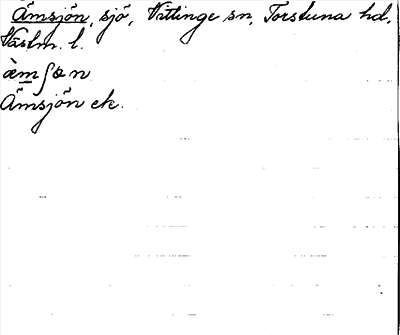 Ämsjön, sjö, Vittinge sn, Torstuna hd,
Västm. l.
ämʃøn
Ämsjön ek.